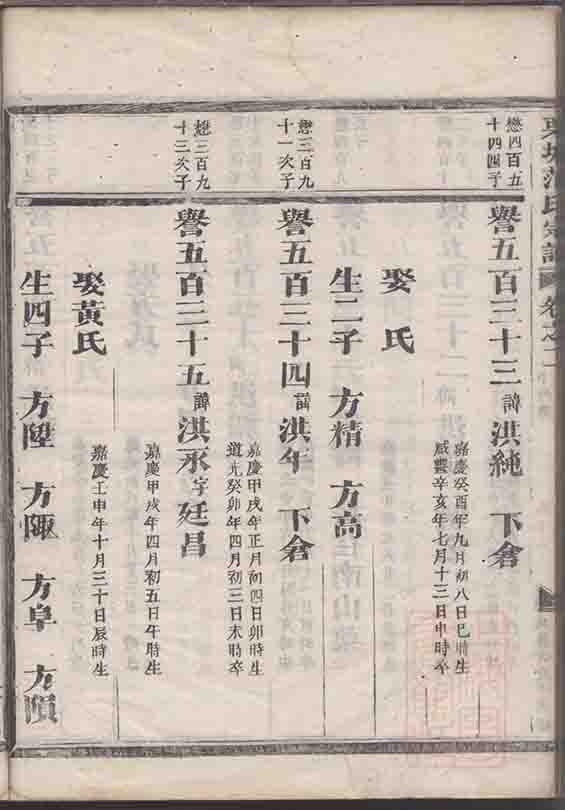 懋四百五
十四四子
譽五百三十三諱洪純 下倉
嘉慶癸酉年九月初八日巳時生
咸豐辛亥年七月十三日申時卒
娶 氏
生二子 方精 方高
懋三百九
十一次子
譽五百三十四諱洪年 下倉
嘉慶甲戌年正月初四日卯時生
道光癸卯年四月初三日未時卒
懋三百九
十三次子
譽五百三十五諱洪承字廷昌
嘉慶甲戌年四月初五日午時生
娶黃氏
嘉慶壬申年十月三十日辰時生
生四子 方陞 方陬 方阜 方隕